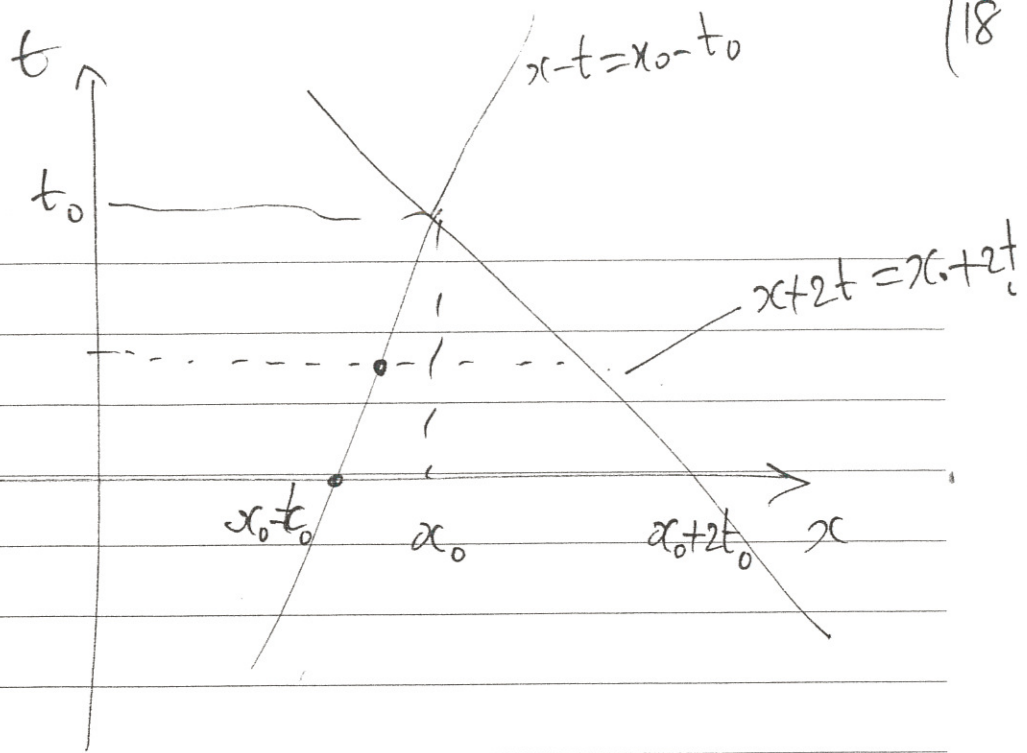 (18
t
x-t=x₀-t₀
t₀
x+2t=x₀+2t
x₀-t₀
x₀
x₀+2t₀
x